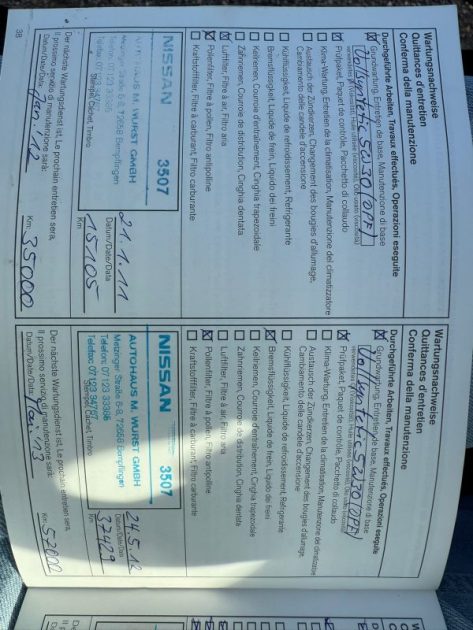 Wartungsnachweise
Quittances d'entretien
Conferma della manutenzione
Durchgeführte Arbeiten, Travaux effectués, Operazioni eseguite
Grundwartung, Entretien de base, Manutenzione di base
Vollsynthetic 5W30 (DPF)
Prüfpaket, Paquet de contrôle, Pacchetto di collaudo
Klima-Wartung, Entretien de la climatisation, Manutenzione del climatizzatore
Austausch der Zündkerzen, Changement des bougies d'allumage,
Cambiamento delle candele d'accensione
Kühlflüssigkeit, Liquide de refroidissement, Refrigerante
Bremsflüssigkeit, Liquide de frein, Liquido dei freini
Keilriemen, Courroie d'entraînement, Cinghia trapezoidale
Zahnriemen, Courroie de distribution, Cinghia dentata
Luftfilter, Filtre à air, Filtro aria
Pollenfilter, Filtre à pollen, Filtro antipolline
Kraftstofffilter, Filtre à carburant, Filtro carburante
NISSAN 3507
AUTOHAUS M. WURST GMBH
Metzinger Straße 6-8, 72658 Bempflingen
Stempel, Cachet, Timbro
Datum/Date/Data
21.1.11
Km
15105
Der nächste Wartungsdienst ist, Le prochain entretien sera,
Il prossimo servizio di manutenzione sarà:
Datum/Date/Data Jan. 12
Km: 35000
38
Wartungsnachweise
Quittances d'entretien
Conferma della manutenzione
Durchgeführte Arbeiten, Travaux effectués, Operazioni eseguite
Grundwartung, Entretien de base, Manutenzione di base
Vollsynthetic 5W30 (DPF)
Prüfpaket, Paquet de contrôle, Pacchetto di collaudo
Klima-Wartung, Entretien de la climatisation, Manutenzione del climatizzatore
Austausch der Zündkerzen, Changement des bougies d'allumage,
Cambiamento delle candele d'accensione
Kühlflüssigkeit, Liquide de refroidissement, Refrigerante
Bremsflüssigkeit, Liquide de frein, Liquido dei freini
Keilriemen, Courroie d'entraînement, Cinghia trapezoidale
Zahnriemen, Courroie de distribution, Cinghia dentata
Luftfilter, Filtre à air, Filtro aria
Pollenfilter, Filtre à pollen, Filtro antipolline
Kraftstofffilter, Filtre à carburant, Filtro carburante
NISSAN 3507
AUTOHAUS M. WURST GMBH
Metzinger Straße 6-8, 72658 Bempflingen
Stempel, Cachet, Timbro
Datum/Date/Data
24.5.12
Km
32429
Der nächste Wartungsdienst ist, Le prochain entretien sera,
Il prossimo servizio di manutenzione sarà:
Datum/Date/Data
Km: 52000